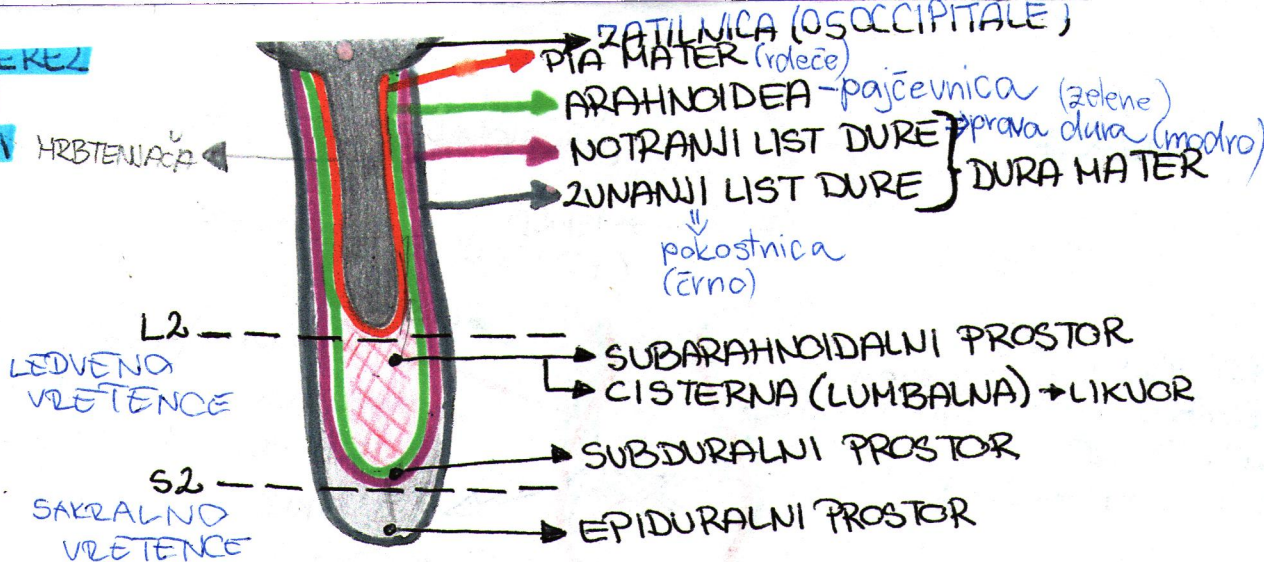 ZATILNICA (OSOCCIPITALE)
PIA MATER (rdeče)
ARAHNOIDEA - pajčevnica (zelene)
NOTRANJI LIST DURE } ⇒ prava dura (modro)
MRBTENJAČA
ZUNANJI LIST DURE } DURA MATER
pokostnica
(črno)
L2
LEDVENO
VRETENCE
SUBARAHNOIDALNI PROSTOR
CISTERNA (LUMBALNA) → LIKVOR
SUBDURALNI PROSTOR
S2
SAKRALNO
VRETENCE
EPIDURALNI PROSTOR